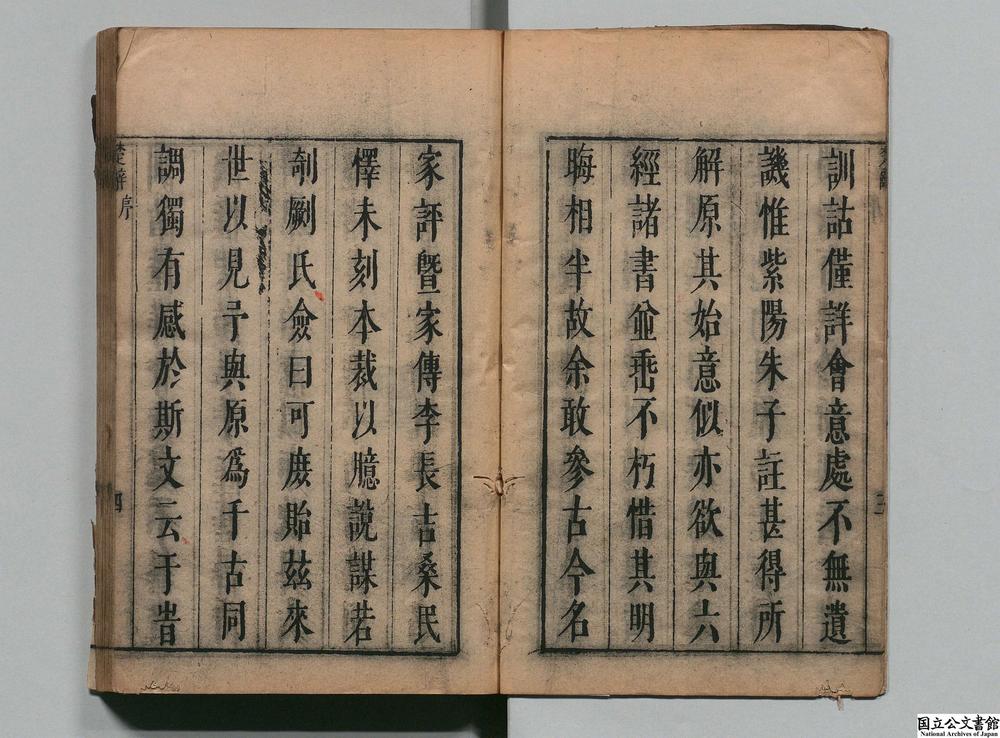 訓詁僅詳會意處不無遺
譏惟紫陽朱子註甚得所
解原其始意似亦欲與六
經諸書竝垂不朽惜其明
晦相半故余敢參古今名
家評暨家傳李長吉桑民
懌未刻本裁以臆說謀若
剞劂氏僉曰可庶貽玆來
世以見予與原爲千古同
調獨有感於斯文云于旹
楚辭序
四
国立公文書館
National Archives of Japan